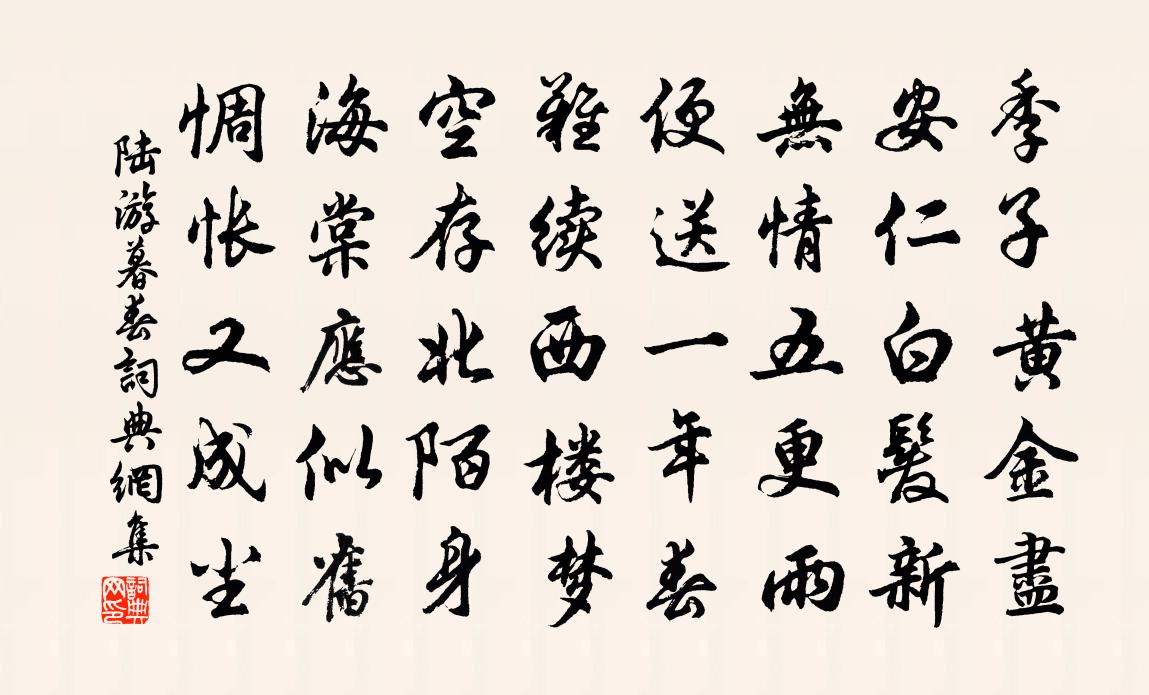 季子黄金盡
安仁白髮新
無情五更雨
便送一年春
難续西楼梦
空存北陌身
海棠應似舊
惆怅又成尘
陆游暮春詞典網集
詞典网印